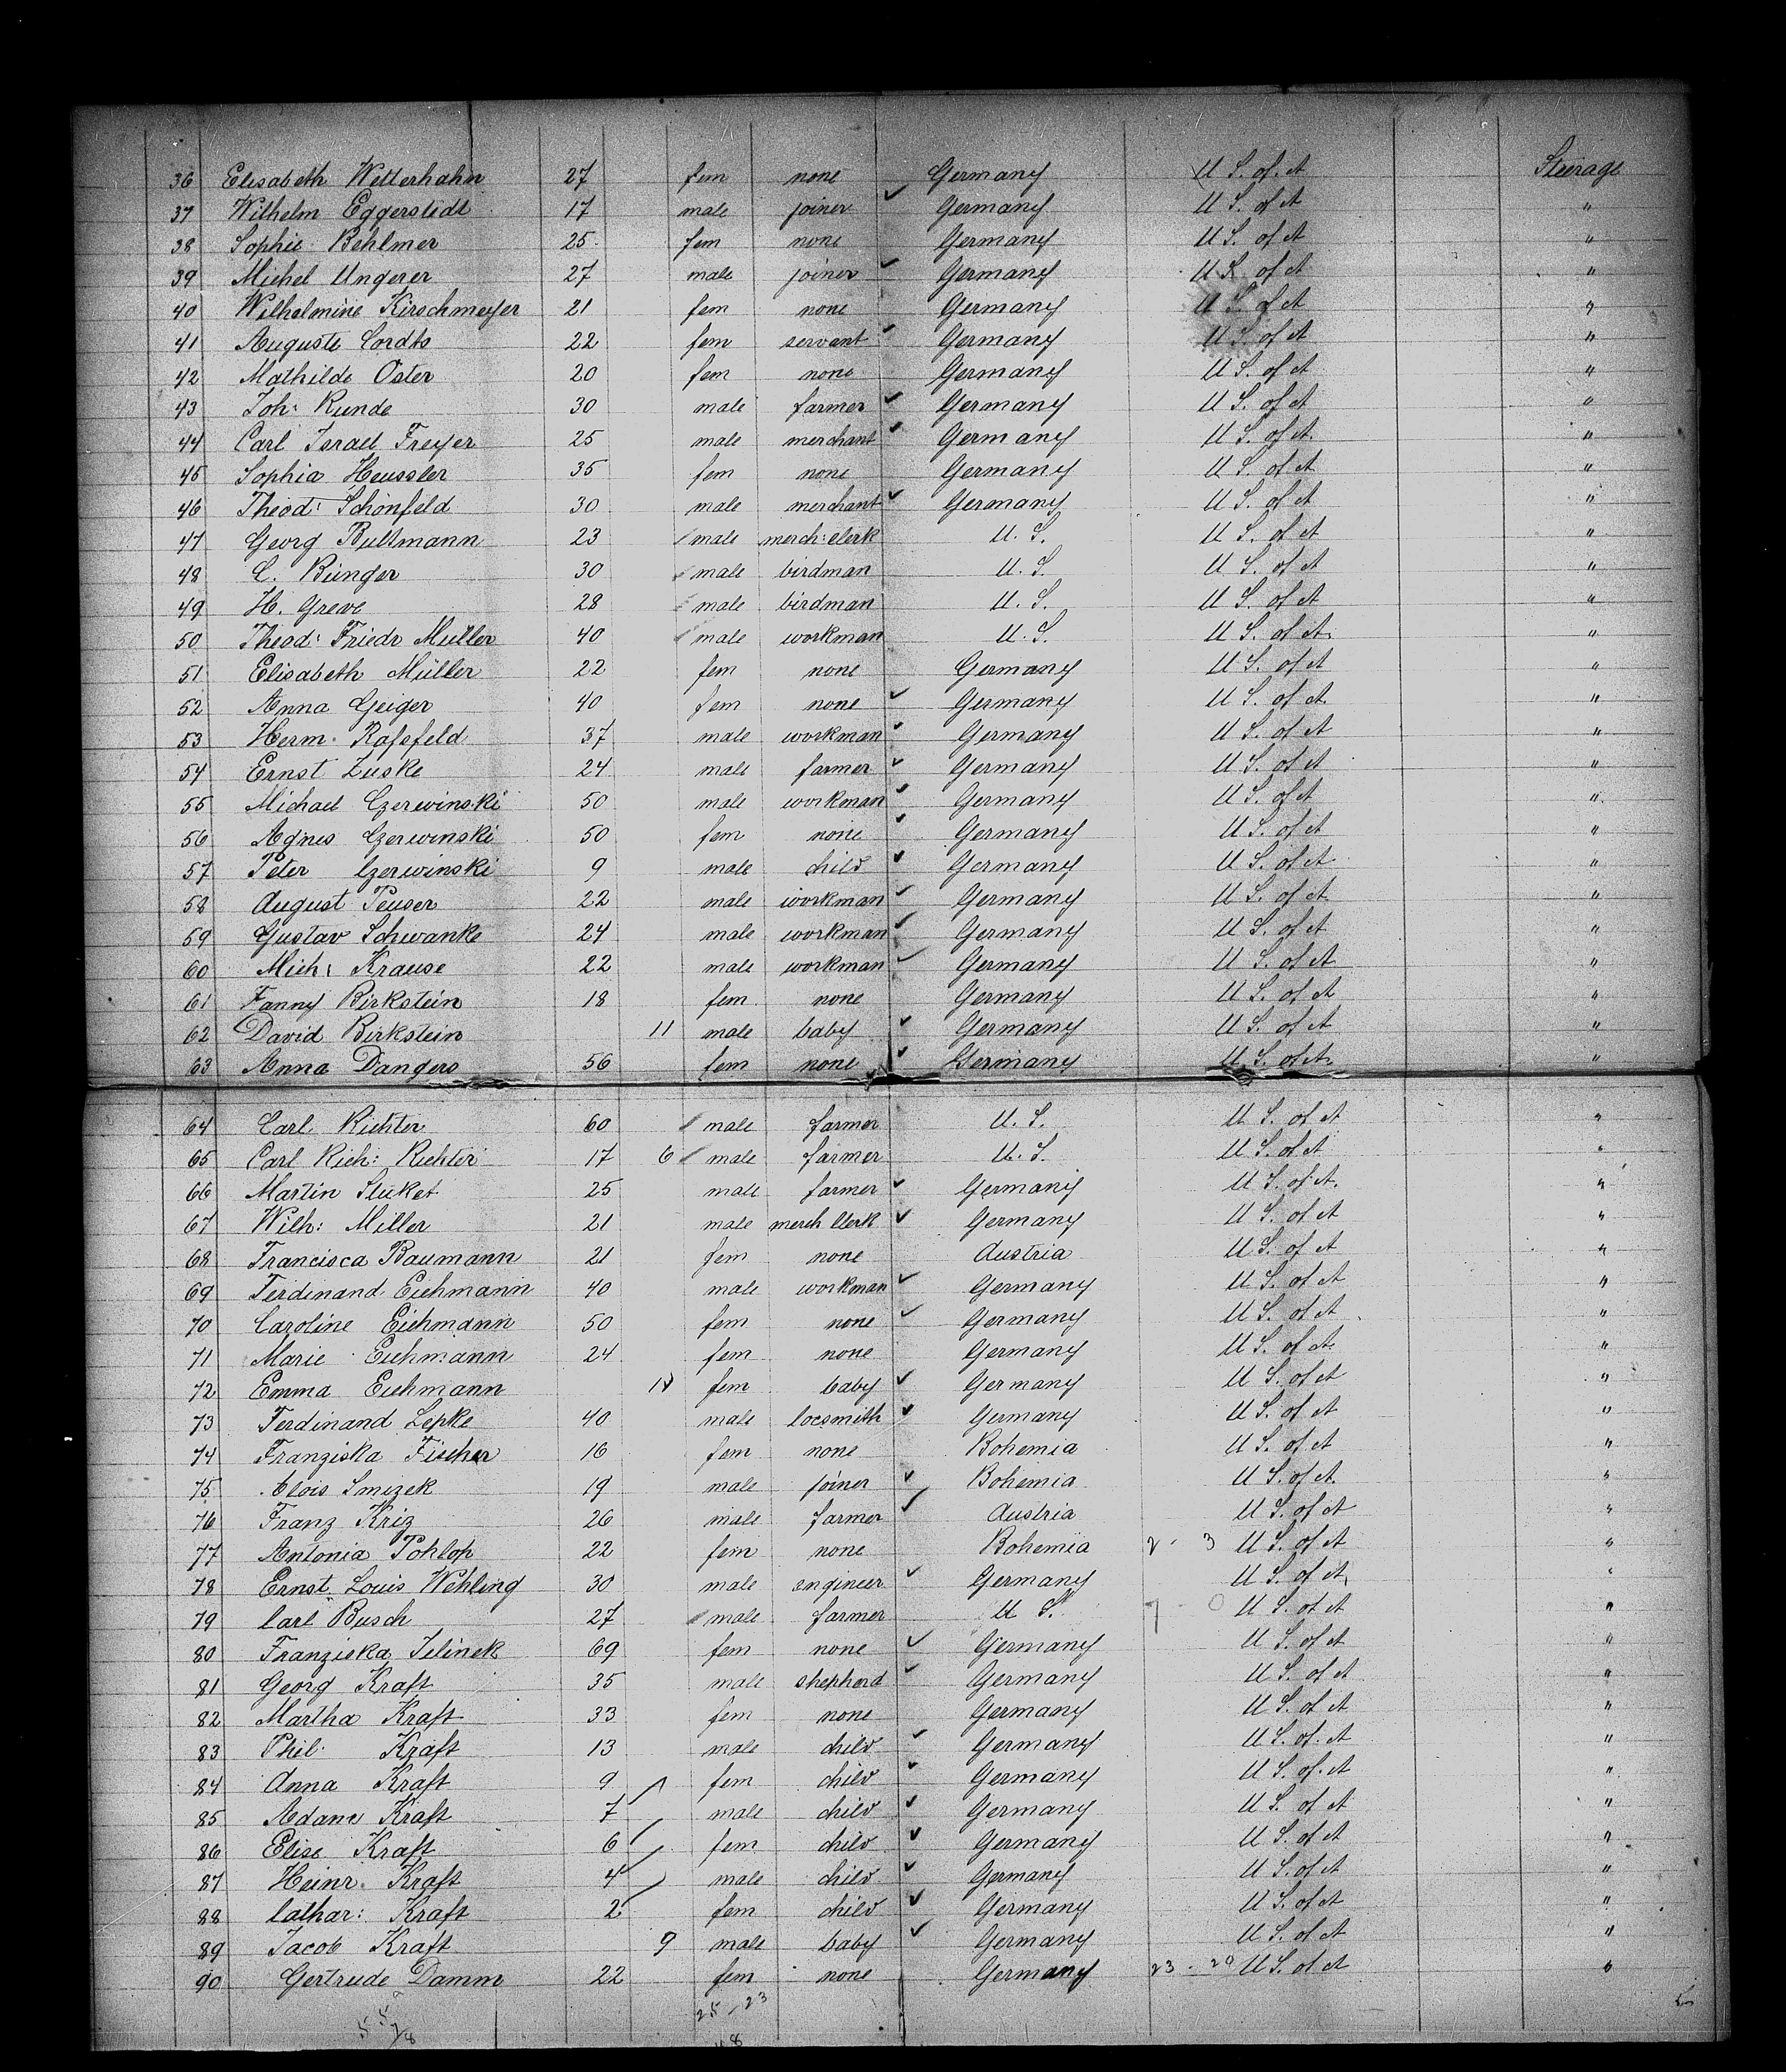 36 Elisabeth Wetterhahn 27 fem none Germany U S. of. A Steerage
37 Wilhelm Eggerstedt 17 male joiner Germany U S. of A "
38 Sophie Behlmer 25 fem none Germany U S. of A "
39 Michel Ungerer 27 male joiner Germany U S. of A "
40 Wilhelmine Kirschmeyer 21 fem none Germany U S. of A "
41 Auguste Cordts 22 fem servant Germany U S. of A "
42 Mathilde Oster 20 fem none Germany U S. of A "
43 Joh: Runde 30 male farmer Germany U S. of A "
44 Carl Israel Freyer 25 male merchant Germany U S. of A. "
45 Sophia Heussler 35 fem none Germany U S. of A "
46 Theod: Schönfeld 30 male merchant Germany U S. of A "
47 Georg Bultmann 23 male merch: clerk U. S. U S. of A "
48 C. Bünger 30 male birdman U. S. U S. of A "
49 H. Greve 28 male birdman U. S. U S. of A "
50 Theod: Friedr Müller 40 male workman U. S. U S. of A. "
51 Elisabeth Müller 22 fem none Germany U S. of A "
52 Anna Geiger 40 fem none Germany U S. of A. "
53 Herm. Rafsfeld 37 male workman Germany U S. of A "
54 Ernst Zuske 24 male farmer Germany U S. of A "
55 Michael Czerwinski 50 male workman Germany U S. of A "
56 Agnes Czerwinski 50 fem none Germany U S. of A "
57 Peter Czerwinski 9 male child Germany U S. of A "
58 August Peuser 22 male workman Germany U S. of A "
59 Gustav Schwanke 24 male workman Germany U S. of A "
60 Mich: Krause 22 male workman Germany U S. of A "
61 Fanny Birkstein 18 fem none Germany U S. of A "
62 David Birkstein 11 male baby Germany U S. of A "
63 Anna Dangers 56 fem none Germany U S. of A. "
64 Carl Richter 60 male farmer U. S. U S. of A "
65 Carl Rich: Richter 17 6 male farmer U. S. U S. of A "
66 Martin Stuket 25 male farmer Germany U S. of A. "
67 Wilh: Miller 21 male merch Clerk Germany U S. of A "
68 Francisca Baumann 21 fem none Austria U S. of A "
69 Ferdinand Eichmann 40 male workman Germany U S. of A "
70 Caroline Eichmann 50 fem none Germany U S. of A "
71 Marie Eichmann 24 fem none Germany U S. of A. "
72 Emma Eichmann fem baby Germany U S. of A "
73 Ferdinand Lepke 40 male locsmith Germany U S. of A "
74 Franziska Fischer 16 fem none Bohemia U S. of A "
75 Alois Smizek 19 male joiner Bohemia U S. of A. "
76 Franz Kriz 26 male farmer Austria U S. of A "
77 Antonia Pohlop 22 fem none Bohemia 2 - 3 U S. of A "
78 Ernst Louis Wehling 30 male engineer Germany U S. of A "
79 Carl Busch 27 male farmer U S. 7 - 0 U S. of A "
80 Franziska Jelinek 69 fem none Germany U S. of A "
81 Georg Kraft 35 male shepherd Germany U S. of A "
82 Martha Kraft 33 fem none Germany U S. of A "
83 Phil: Kraft 13 male child Germany U S. of. A "
84 Anna Kraft 9 fem child Germany U S. of. A "
85 Adam Kraft 7 male child Germany U S. of A "
86 Elise Kraft 6 fem child Germany U S. of A "
87 Heinr. Kraft 4 male child Germany U S. of A "
88 Cathar: Kraft 2 fem child Germany U S. of A "
89 Jacob Kraft 9 male baby Germany U S. of A "
90 Gertrude Damm 22 fem none Germany 23 - 20 U S. of A "
25 / 23